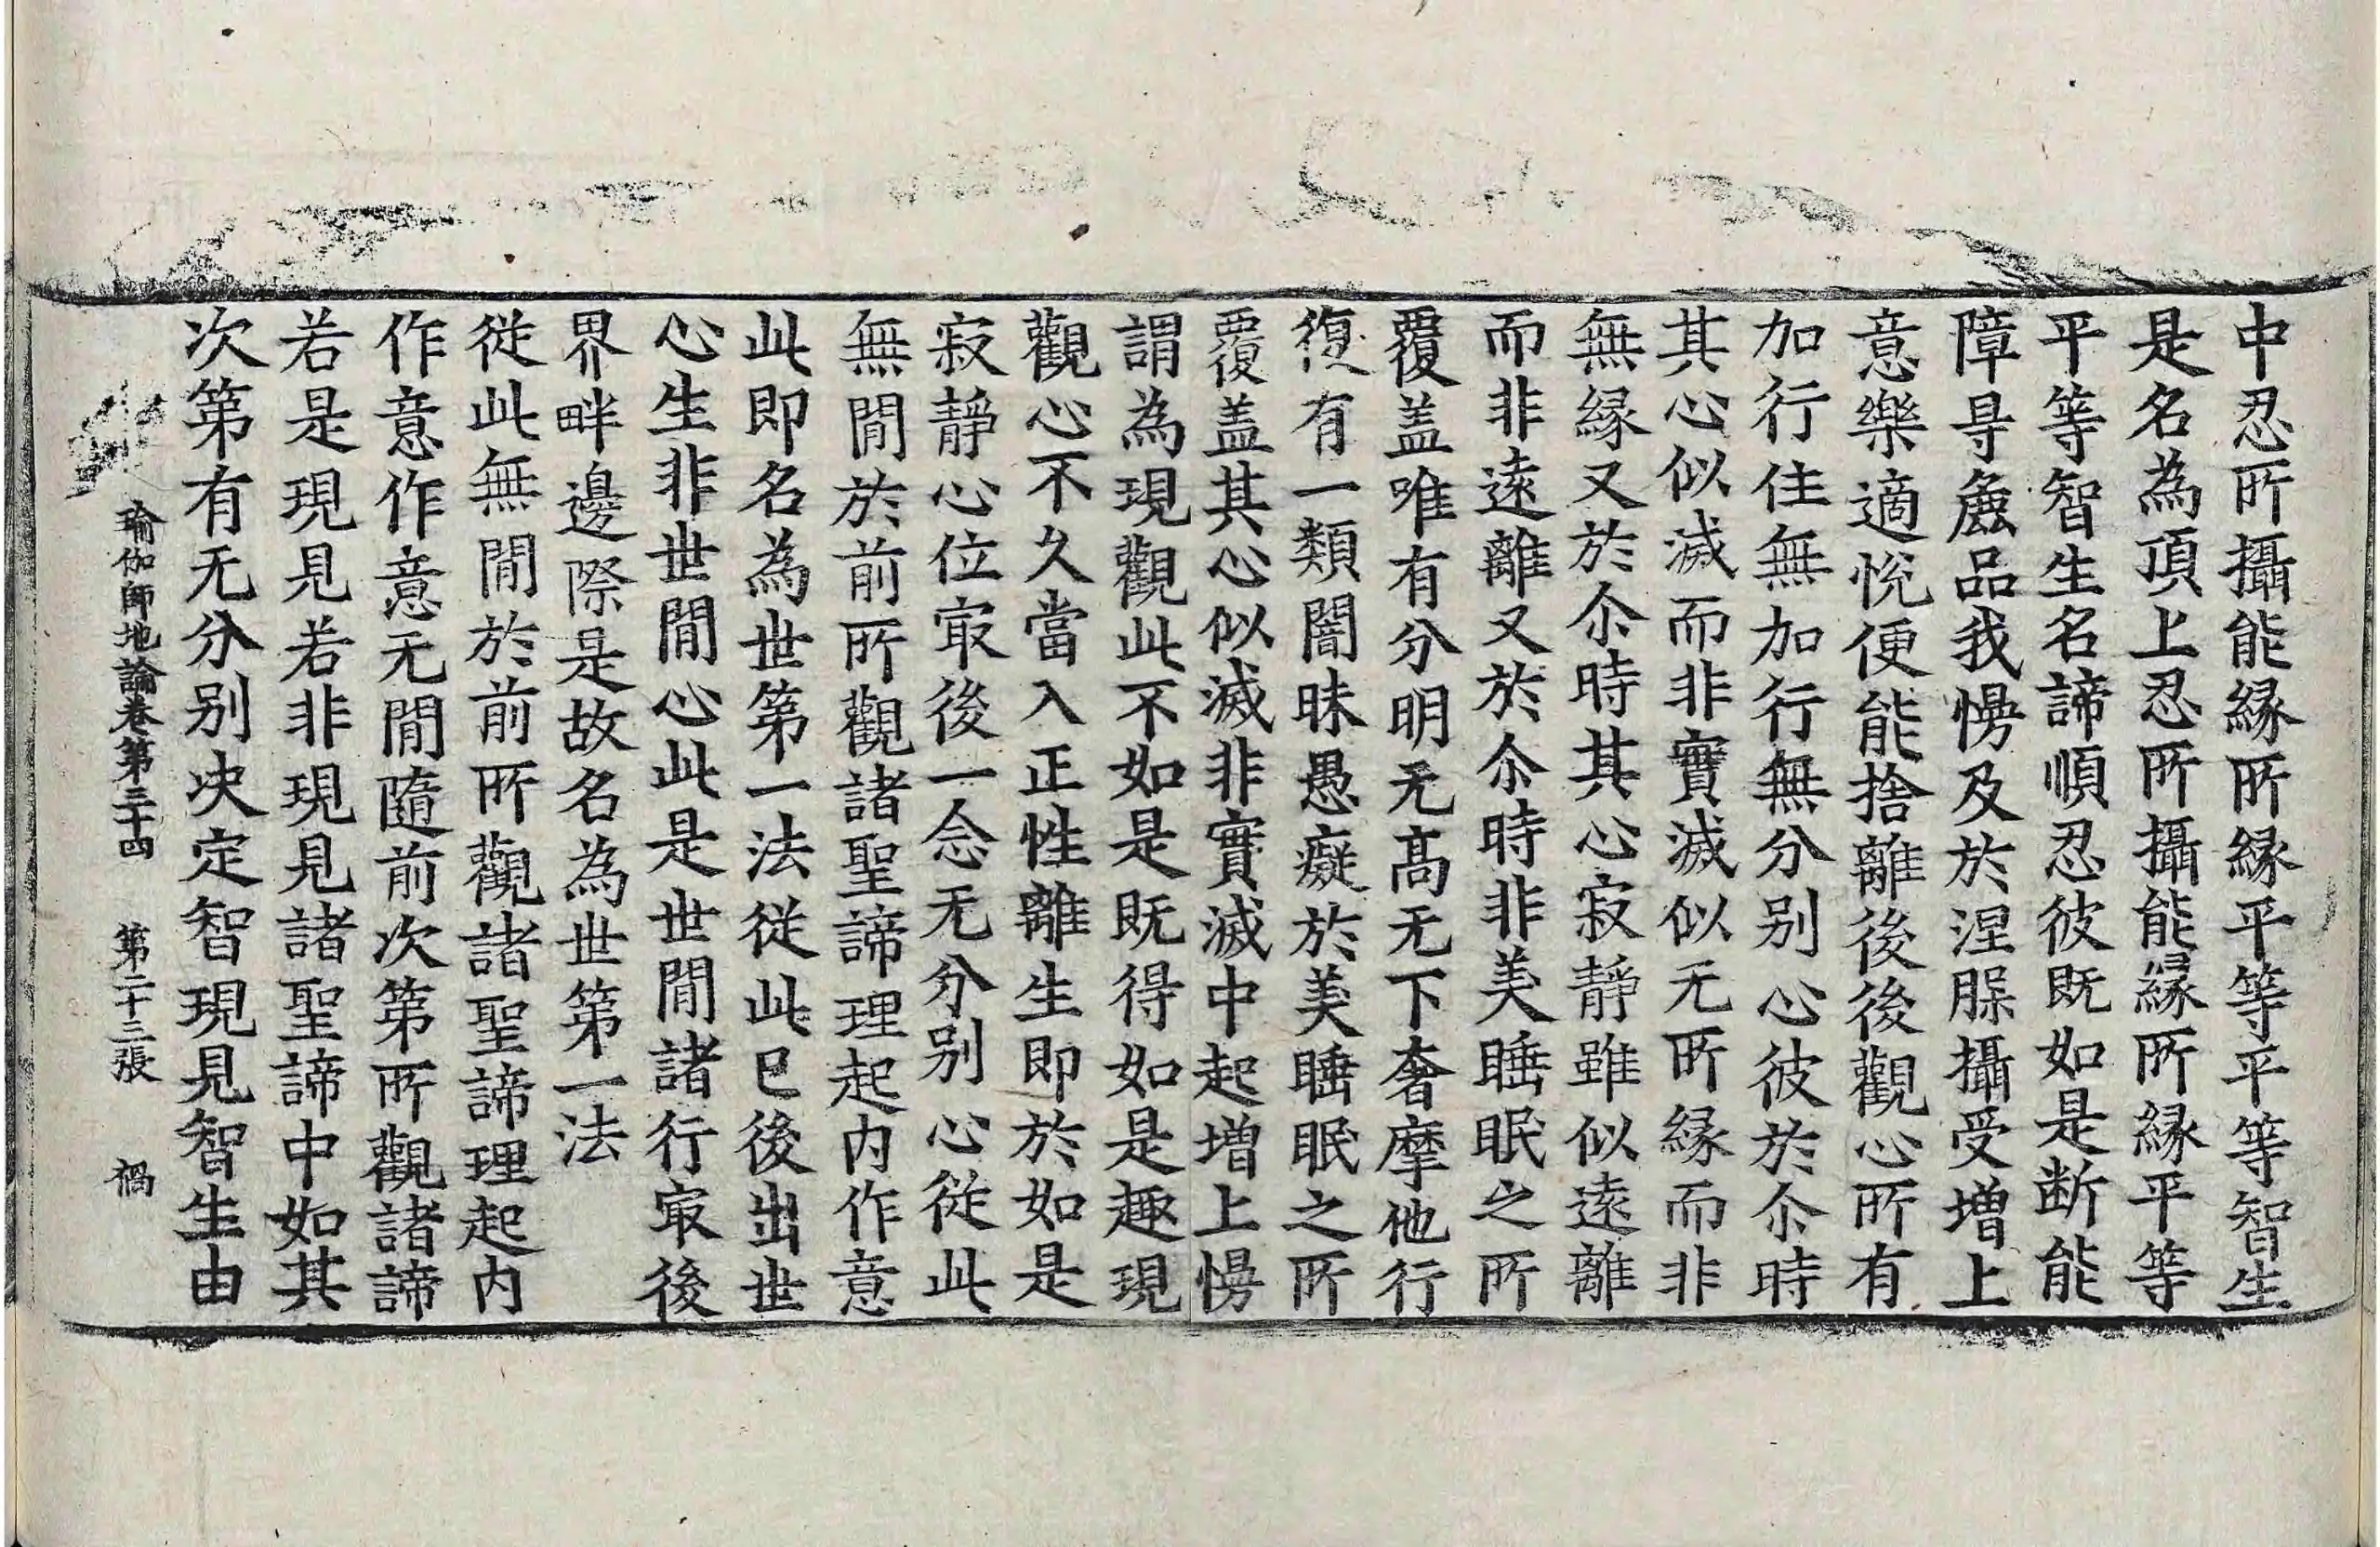 中忍所攝能緣所緣平等平等智生
是名為頂上忍所攝能緣所緣平等
平等智生名諦順忍彼既如是断能
障㝵麁品我慢及於涅脲攝受增上
意樂適悅便能捨離後後觀心所有
加行住無加行無分别心彼於尒時
其心似滅而非實滅似无所緣而非
無緣又於尒時其心寂靜雖似遠離
而非遠離又於尒時非美睡眠之所
覆盖唯有分明无髙无下奢摩他行
復有一類闇昧愚癡於美睡眠之所
覆盖其心似滅非實滅中起增上慢
謂為現觀此不如是既得如是趣現
觀心不久當入正性離生即於如是
寂靜心位㝡後一念无分别心從此
無閒於前所觀諸聖諦理起内作意
此即名為世第一法從此已後出世
心生非世閒心此是世閒諸行㝡後
界畔邊際是故名為世第一法
從此無閒於前所觀諸聖諦理起内
作意作意无閒隨前次第所觀諸諦
若是現見若非現見諸聖諦中如其
次第有无分别决定智現見智生由
瑜伽師地論卷第三十四　第二十三張　禍